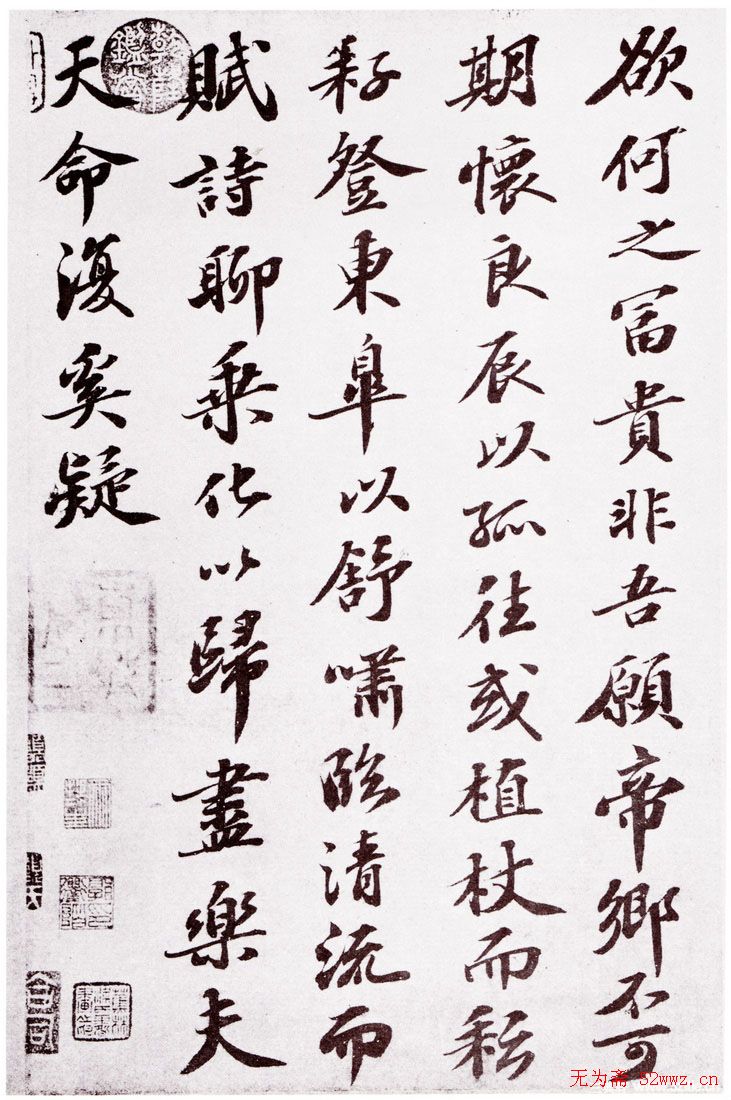 欲何之冨貴非吾願帝鄉不可
期懷良辰以孤往或植杖而耘
耔登東皋以舒嘯臨清流而
賦詩聊乘化以歸盡樂夫
天命復奚疑
无为斋 32wwz.cn